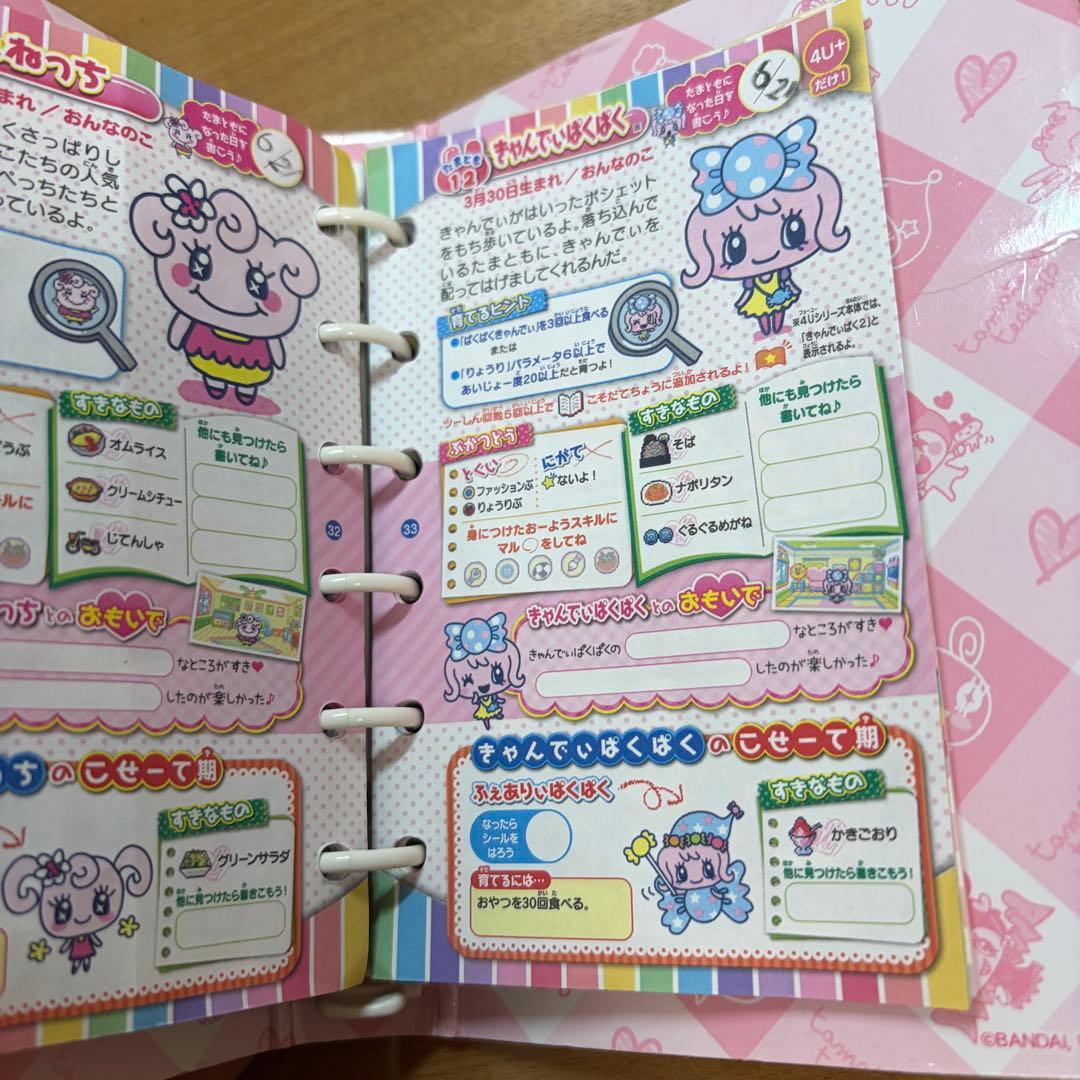 ねっち
まれ／おんなのこ
たまともに
なった日を
書こう♪
くさっぱりし
こたちの人気
ぺっちたちと
っているよ。
すきなもの
オムライス
クリームシチュー
じてんしゃ
他にも見つけたら
書いてね♪
うぶ
スキルに
32
っちとのおもいで
なところがすき♥
したのが楽しかった♪
ちのこせーて期
すきなもの
グリーンサラダ
他に見つけたら書きこもう!
たまとも
12
きゃんでぃぱくぱく
3月30日生まれ／おんなのこ
たまともに
なった日を
書こう♪
4U+
だけ!
きゃんでぃがはいったポシェット
をもち歩いているよ。落ち込んで
いるたまともに、きゃんでぃを
配ってはげましてくれるんだ。
育てるヒント
●「ぱくぱくきゃんでぃ」を3回以上食べる
または
●「りょうり」パラメータ6以上で
あいじょー度20以上だと育つよ!
※4Uシリーズ本体では、
「きゃんでぃぱく2」と
表示されるよ。
ツーしん回数5回以上で こそだてちょうに追加されるよ!
ぶかつどう
とくい
ファッションぶ
りょうりぶ
にがて
ないよ!
身につけたおーようスキルに
マル○をしてね
すきなもの
そば
ナポリタン
ぐるぐるめがね
他にも見つけたら
書いてね♪
33
きゃんでぃぱくぱくとのおもいで
きゃんでぃぱくぱくの
なところがすき♥
したのが楽しかった♪
きゃんでぃぱくぱくのこせーて期
ふぇありぃぱくぱく
なったら
シールを
はろう
育てるには…
おやつを30回食べる。
すきなもの
かきごおり
他に見つけたら書きこもう!
©BANDAI,